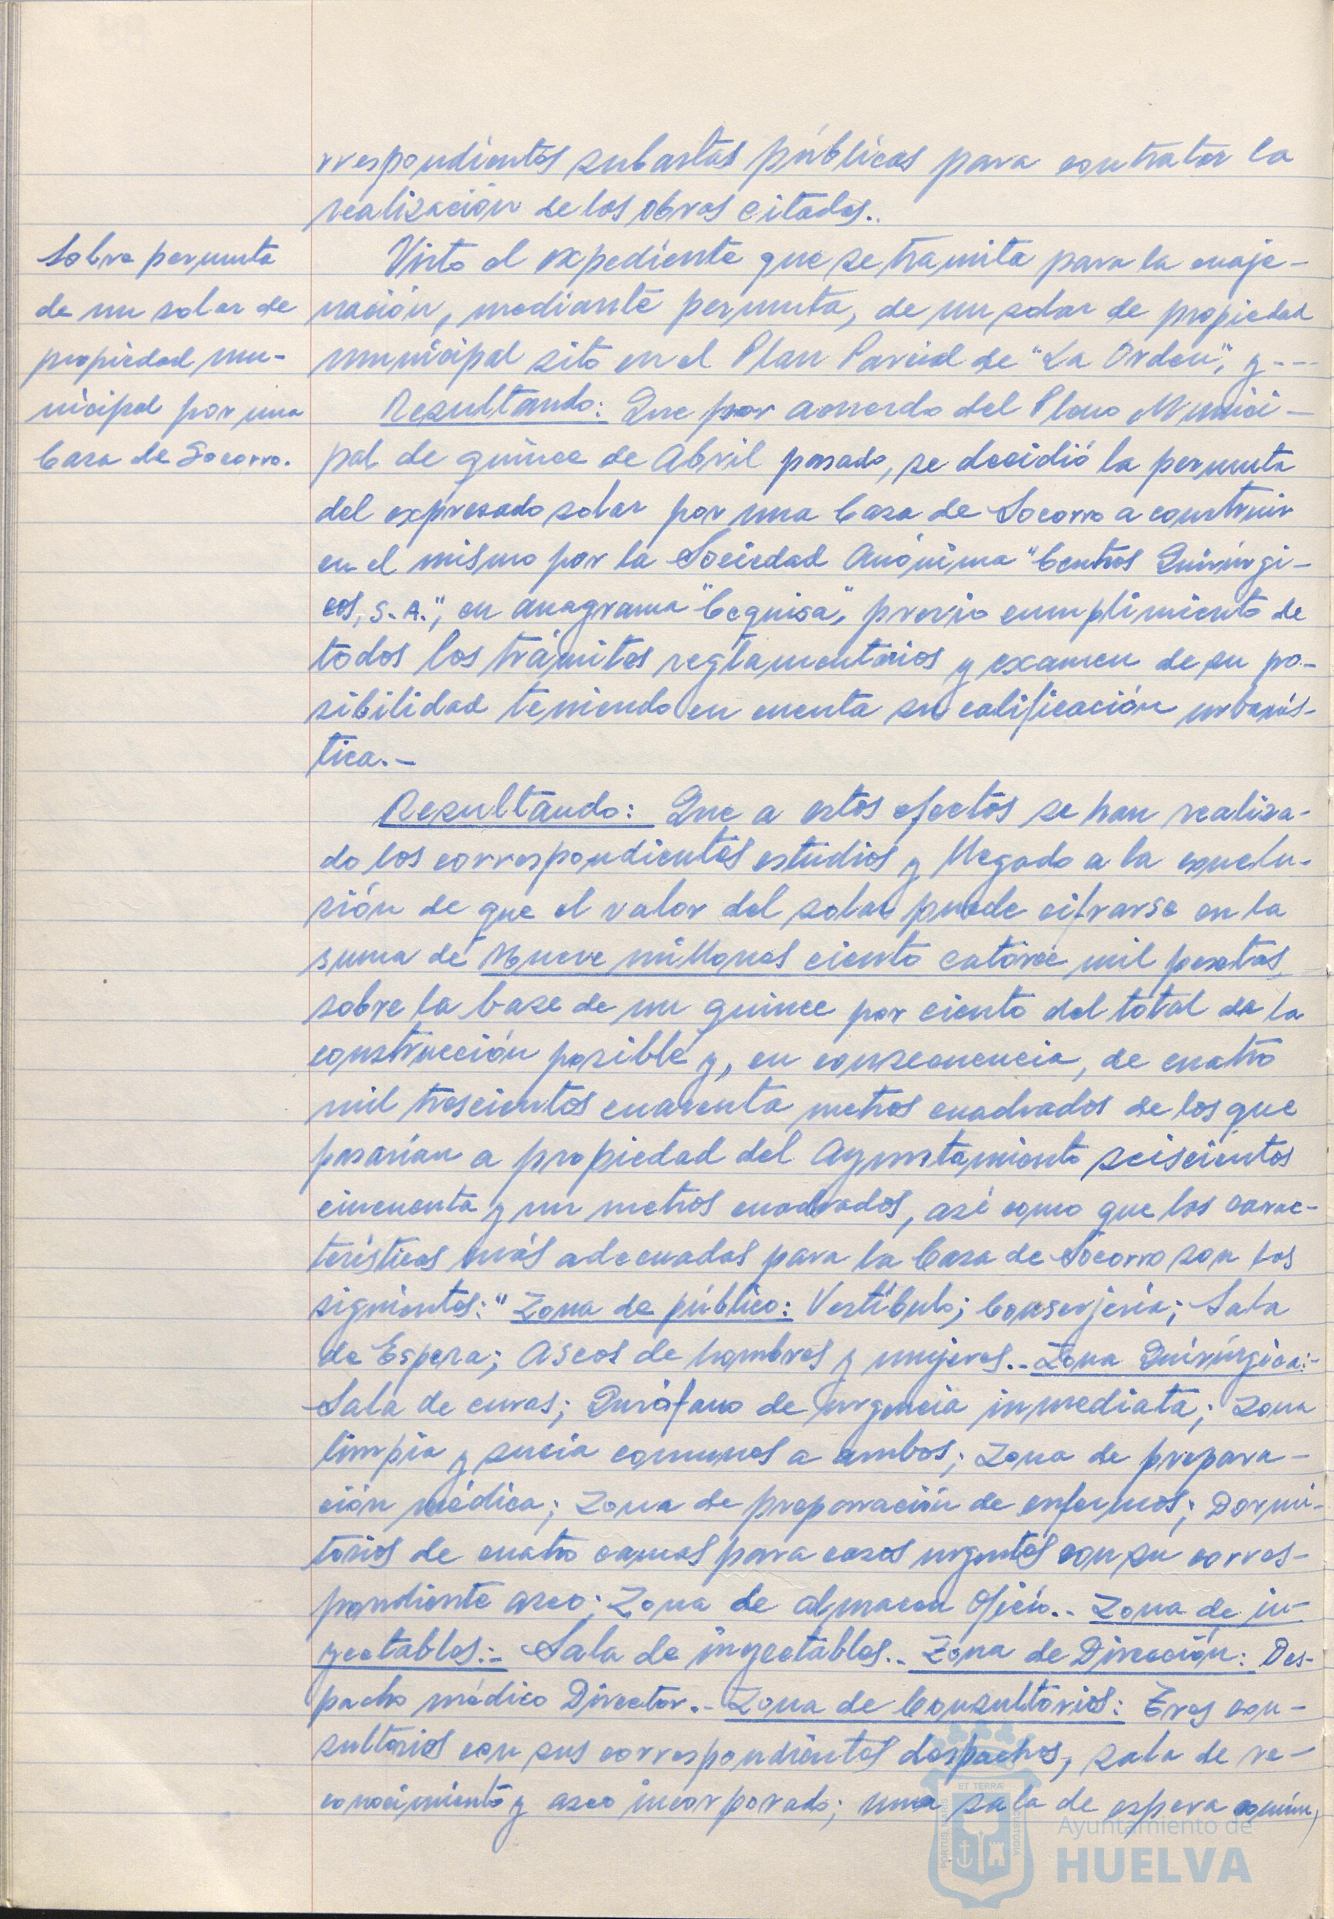 rrespondientes subastas públicas para contratar la
realización de las obras citadas..
Sobre permuta
de un solar de
propiedad mu-
nicipal por una
Casa de Socorro.
Visto el expediente que se tramita para la enaje-
nación, mediante permuta, de un solar de propiedad
municipal sito en el Plan Parcial de "La Orden", y ---
Resultando: Que por acuerdo del Pleno Munici-
pal de quince de Abril pasado, se decidió la permuta
del expresado solar por una Casa de Socorro a construir
en el mismo por la Sociedad Anónima "Centros Quirúrgi-
cos, S.A.", en anagrama "Cequisa", previo cumplimiento de
todos los trámites reglamentarios y examen de su po-
sibilidad teniendo en cuenta su calificación urbanís-
tica.-
Resultando: Que a estos efectos se han realiza-
do los correspondientes estudios y llegado a la conclu-
sión de que el valor del solar puede cifrarse en la
suma de nueve millones ciento catorce mil pesetas
sobre la base de un quince por ciento del total de la
construcción posible y, en consecuencia, de cuatro
mil trescientos cuarenta metros cuadrados de los que
pasarían a propiedad del Ayuntamiento seiscientos
cincuenta y un metros cuadrados, así como que las carac-
terísticas más adecuadas para la Casa de Socorro son las
siguientes: "Zona de público: Vestíbulo; Conserjería; Sala
de Espera; Aseos de hombres y mujeres.- Zona Quirúrgica:-
Sala de curas; Quirófano de urgencia inmediata; Zona
limpia y sucia comunes a ambos; Zona de prepara-
ción médica; Zona de preparación de enfermos; Dormi-
torios de cuatro camas para casos urgentes con su corres-
pondiente aseo; Zona de almacen Oficio.- Zona de in-
yectables:- Sala de inyectables.- Zona de Dirección: Des-
pacho médico Director.- Zona de Consultorios: Tres con-
sultorios con sus correspondientes despachos, sala de re-
conocimiento y aseo incorporado; una sala de espera común,
ET TERRAE
PORTUS MARIS
CUSTODIA
Ayuntamiento de
HUELVA